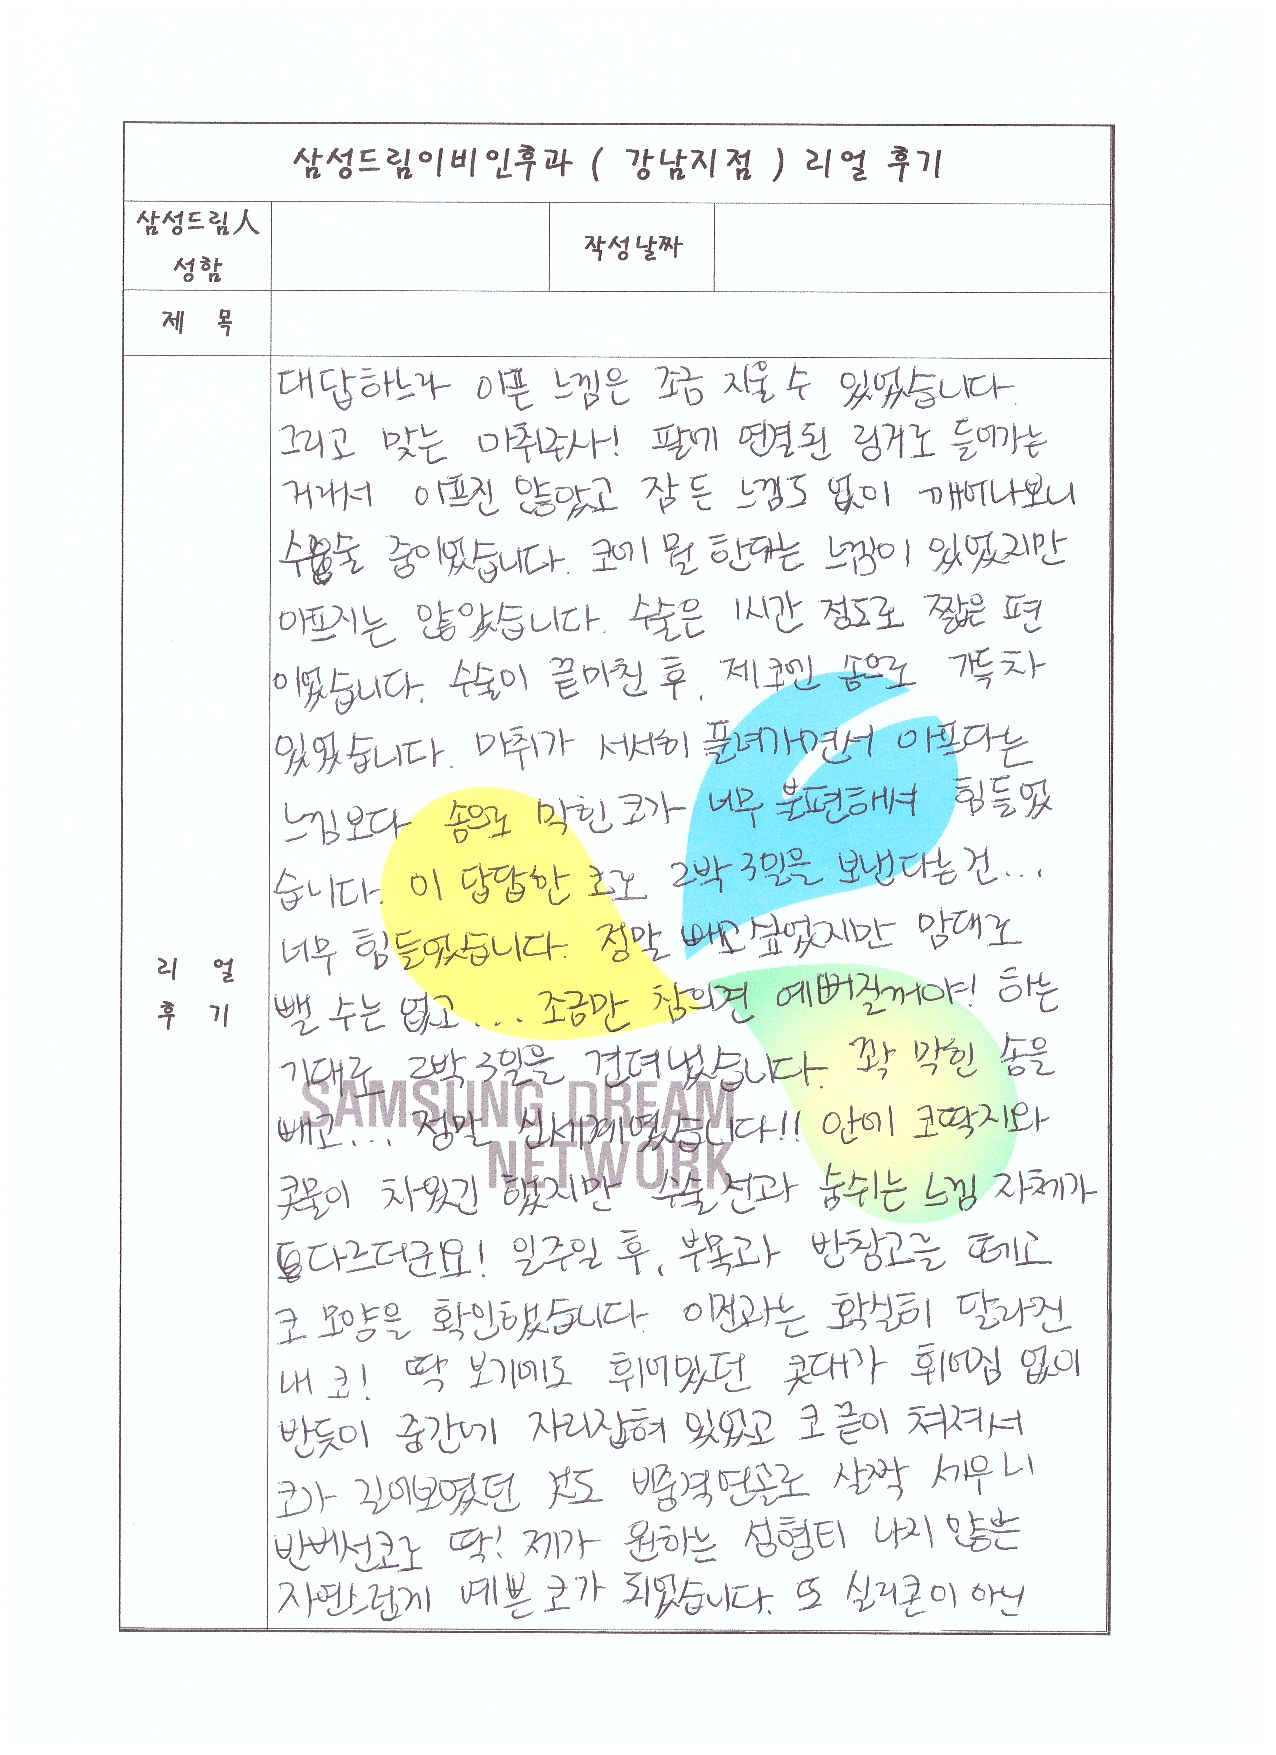 삼성드림이비인후과 ( 강남지점 ) 리얼 후기
삼성드림人 성함
작성날짜
제 목
리 얼 후 기
대답하느라 아픈 느낌은 조금 지울 수 있었습니다.
그리고 맞는 마취주사! 팔에 연결된 링거로 들어가는
거라서 아프진 않았고 잠 든 느낌도 없이 깨어나보니
수술 중이었습니다. 코에 뭘 한다는 느낌이 있었지만
아프지는 않았습니다. 수술은 1시간 정도로 짧은 편
이었습니다. 수술이 끝마친 후, 제 코엔 솜으로 가득 차
있었습니다. 마취가 서서히 풀려가면서 아프다는
느낌보다 솜으로 막힌 코가 너무 불편해서 힘들었
습니다. 이 답답한 코로 2박 3일을 보낸다는건...
너무 힘들었습니다. 정말 빼고싶었지만 맘대로
뺄 수는 없고... 조금만 참의면 예뻐질꺼야! 하는
기대로 2박 3일을 견뎌냈습니다. 꽉 막힌 솜을
빼고... 정말 신세계였습니다!! 안에 코딱지와
콧물이 차있긴 했지만 수술 전과 숨쉬는 느낌 자체가
다르더군요! 일주일 후, 부목과 반창고를 떼고
코 모양을 확인했습니다. 이전과는 확실히 달라진
내 코! 딱 보기에도 휘어있던 콧대가 휘어짐 없이
반듯이 중간에 자리잡혀 있었고 코 끝이 쳐져서
코가 길어보였던 것도 비중격연골로 살짝 세우니
반버선코로 딱! 제가 원하는 성형티 나지 않는
자연스럽게 예쁜 코가 되었습니다. 또 실리콘이 아닌
SAMSUNG DREAM
NETWORK